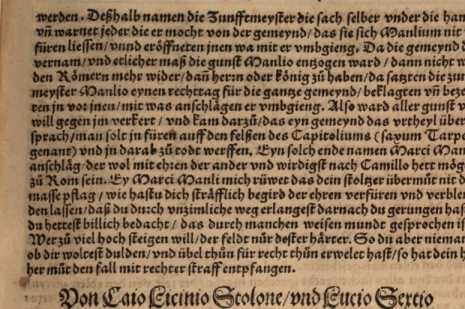 werden. Deßhalb namen die Zunfftmeyster die sach selber vnder die han
vñ warnet jeder die er mocht von der gemeynd/das sie sich Manlium nit
füren liessen/vnnd eröffneten jnen wa mit er vmbgieng. Da die gemeynd
vernam/vnd etlicher maß die gunst Manlio entzogen ward/dann nicht w
den Römern mehr wider/dañ herrn oder König zů haben/da satzten die zun
meyster Manlio eynen rechttag für die gantze gemeynd/beklagten vñ beze
ten jn vor jnen/mit was anschlägen er vmbgieng. Also ward aller gunst v
will gegen jm verkert/vnd kam darzů/das eyn gemeynd das vrtheyl über
sprach/man solt jn füren auff den felßen des Capitoliums (saxum Tarpe
genant) vnd jn darab zů todt werffen. Eyn solch ende namen Marci Man
anschläg/der wol mit ehren der ander vnd wirdigst nach Camillo hett mög
zů Rom sein. Ey Marci Manli mich rüwet das dein stoltzer übermůt nit d
masse pflag/wie hastu dich sträfflich begird der ehren verfüren vnd verble
den lassen/daß du durch vnzimliche weg erlangest darnach du gerungen haß
du hettest billich bedacht/das durch manchen weisen mundt gesprochen is
Wer zů viel hoch steigen will/der feldt nůr dester härter. So du aber nieman
ob dir woltest dulden/vnd übel thůn für recht thůn erwelet hast/so hat dein h
her můt den fall mit rechter straff entpfangen.
Von Caio Licinio Stolone/vnd Lucio Sextio